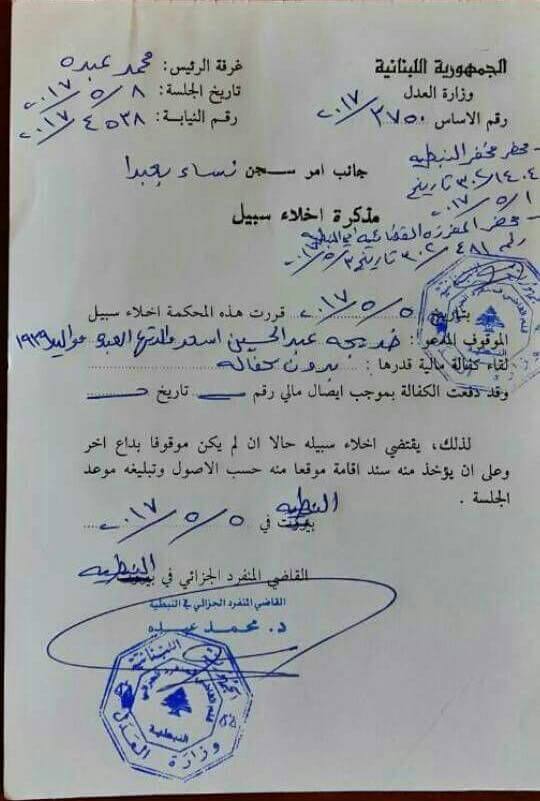 الجمهورية اللبنانية
وزارة العدل
رقم الاساس ٣٧٥٠/٢٠١٧
غرفة الرئيس: محمد عبده
تاريخ الجلسة: ٨/٥/٢٠١٧
رقم النيابة: ٤٥٣٨/٢٠١٧
- محضر مخفر النبطيه
٣٠٢ تاريخ
١/٥/٢٠١٧
جانب امر سجن نساء بعبدا
مذكرة اخلاء سبيل
- محضر المفرزه القضائيه في النبطيه
رقم ٤٨١/٣٠٢ تاريخ ٣/٥/٢٠١٧
بتاريخ ٥/٥/٢٠١٧ قررت هذه المحكمة اخلاء سبيل
الموقوف المدعو: خديجه عبد الحسين اسعد والدتها مواليد ١٩٣٩
لقاء كفالة مالية قدرها: بدون كفاله
وقد دفعت الكفالة بموجب ايصال مالي رقم ــ تاريخ ــ
لذلك، يقتضي اخلاء سبيله حالا ان لم يكن موقوفا بداع اخر
وعلى ان يؤخذ منه سند اقامة موقعا منه حسب الاصول وتبليغه موعد
الجلسة .
النبطيه
بيروت في ٥/٥/٢٠١٧
القاضي المنفرد الجزائي في بيروت النبطيه
القاضي المنفرد الجزائي في النبطية
د. محمد عبده
الجمهورية اللبنانية
النبطية
وزارة العدل